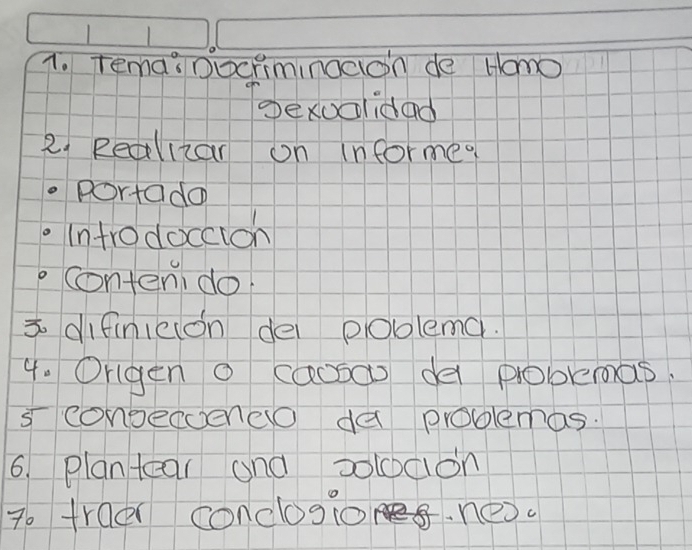 1. Tema: Discriminación de Homo
sexualidad
2. Realizar un informe:
• Portada
• Introducción
• contenido.
3. difinición del problema.
4. Origen o causas del problemas.
5 consecuencia del problemas.
6. plantear una solución
7. traer conclusiones.nes.